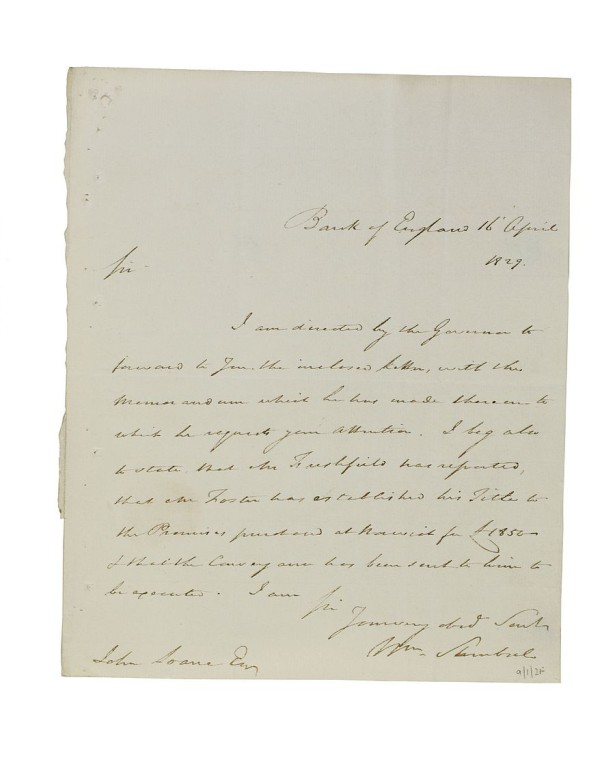 Bank of England 16 April
1829.
Sir
I am directed by the Governor to
forward to You the inclosed letter, with the
Memorandum which he has made thereon to
which he requests your attention. I beg also
to state that Mr Freshfield has reported,
that Mr Foster has established his Title to
the Premises purchased at Norwich for £1850
& that the Conveyance has been sent to him to
be executed. I am
Sir
Your very obed Servt
Wm
John Soane Esq